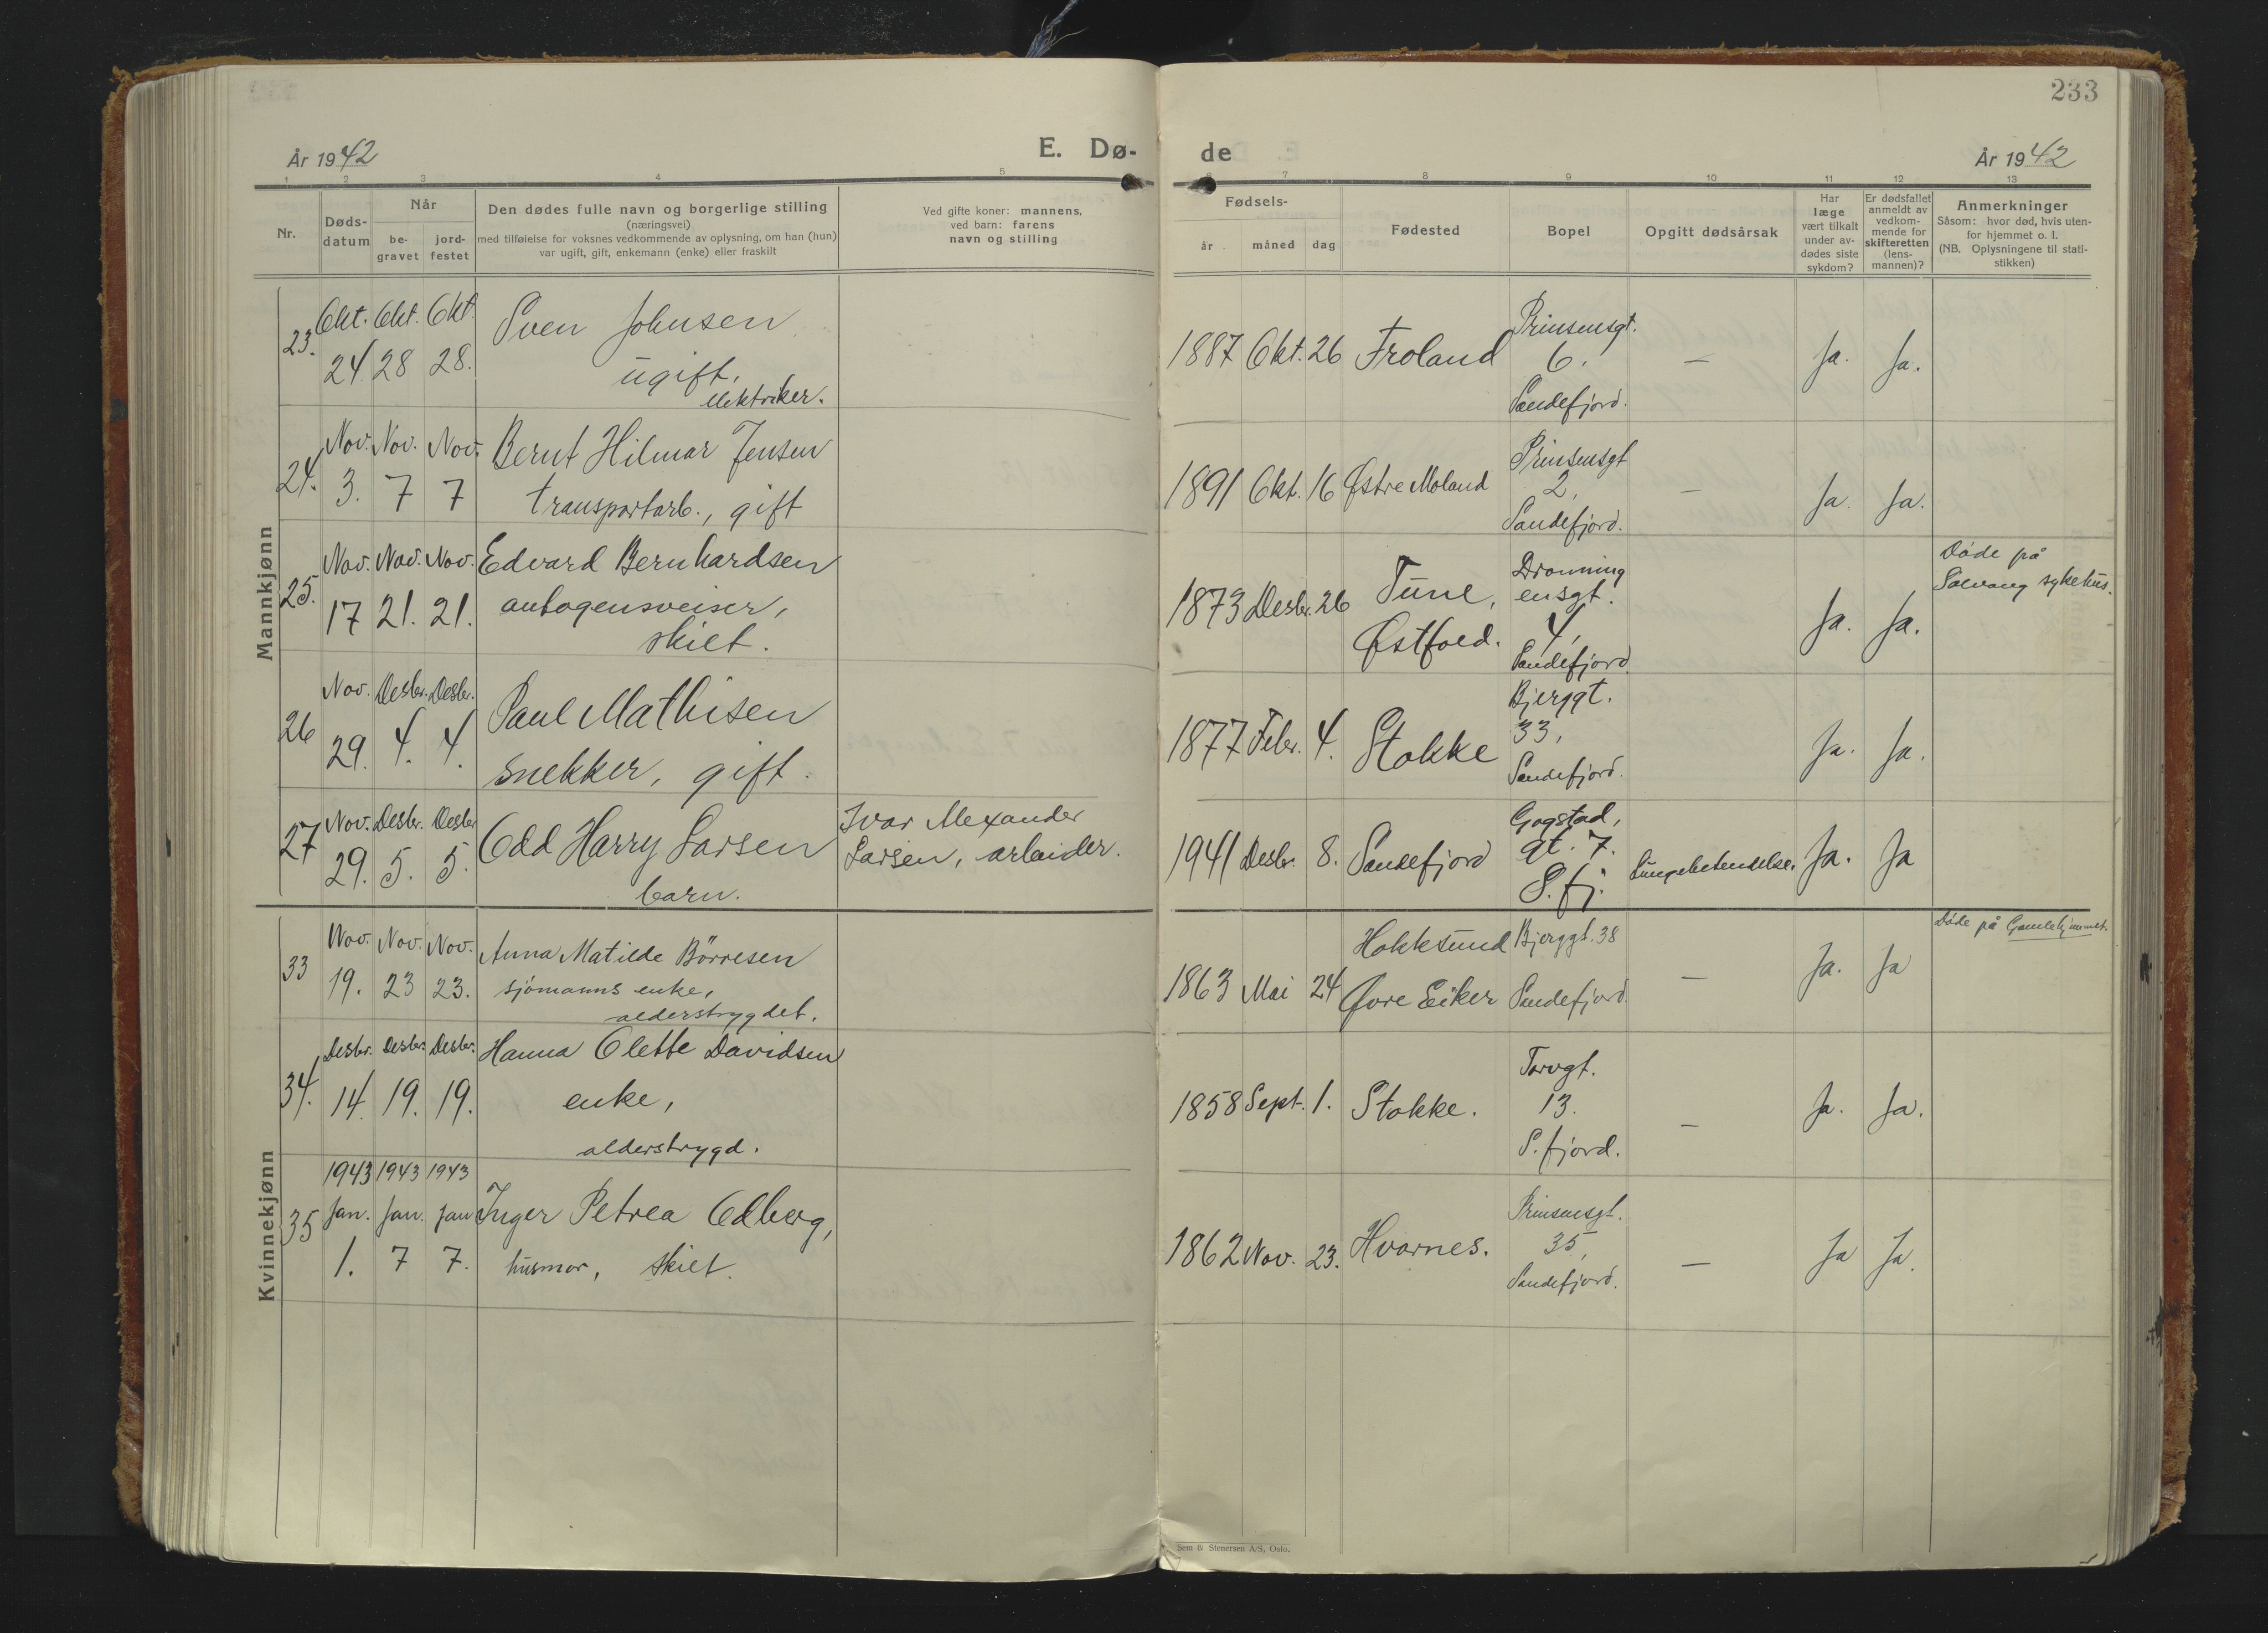 233
År 1942
E. Dø-
de
År 1942
1 2 3 4 5
7 8 9 10 11 12 13
Nr.
Døds-
datum
Når
be-
gravet
jord-
festet
Den dødes fulle navn og borgerlige stilling
(næringsvei)
med tilføielse for voksnes vedkommende av oplysning, om han (hun)
var ugift, gift, enkemann (enke) eller fraskilt
Ved gifte koner: mannens,
ved barn: farens
navn og stilling
Fødsels-
år
måned
dag
Fødested
Bopel
Opgitt dødsårsak
Har
læge
vært tilkalt
under av-
dødes siste
sykdom?
Er dødsfallet
anmeldt av
vedkom-
mende for
skifteretten
(lens-
mannen)?
Anmerkninger
Såsom: hvor død, hvis uten-
for hjemmet o. l.
(NB. Oplysningene til stati-
stikken)
Mannkjønn
23. Okt. 24. Okt. 28 Okt. 28.
Sven Johnsen
ugift,
elektriker.
1887 Okt. 26 Froland
Prinsensgt.
6.
Sandefjord.
— Ja. Ja.
24. Nov. 3. Nov. 7 Nov. 7
Bernt Hilmar Jensen
transportarb., gift
1891 Okt. 16 Østre Moland
Prinsensgt
2,
Sandefjord.
— Ja. Ja.
25. Nov. 17 Nov. 21. Nov. 21.
Edvard Bernhardsen
autogensveiser,
skilt.
1873 Desbr. 26 Tune,
Østfold.
Dronning
ensgt.
4,
Sandefjord
Ja. Ja.
Døde på
Solvang sykehus.
26 Nov. 29. Desbr. 4. Desbr. 4.
Paul Mathisen
snekker, gift.
1877 Febr. 4. Stokke
Bjerggt.
33,
Sandefjord.
Ja. Ja.
27 Nov. 29. Desbr. 5. Desbr 5.
Odd Harry Larsen
barn.
Ivar Alexander
Larsen, arbeider.
1941 Desbr. 8. Sandefjord
Gogstad,
gt. 7.
S.fj.
Lungebetendelse. Ja. Ja
Kvinnekjønn
33 Nov. 19. Nov. 23 Nov. 23.
Anna Matilde Börresen
sjömanns enke,
alderstrygdet.
1863 Mai 24 Hokksund
Øvre Eiker
Bjerggt. 38
Sandefjord.
— Ja. Ja
Døde på Gamlehjemmet.
34. Desbr. 14. Desbr. 19. Desbr. 19.
Hanna Olette Davidsen
enke,
alderstrygd.
1858 Sept. 1. Stokke.
Torvgt.
13.
S.fjord.
— Ja. Ja.
35 1943 Jan. 1. 1943 Jan. 7 1943 Jan 7.
Inger Petrea Edberg,
husmor, skilt.
1862 Nov. 23. Hvarnes.
Prinsensgt.
35,
Sandefjord.
— Ja Ja.
Sem & Stenersen A/S, Oslo.